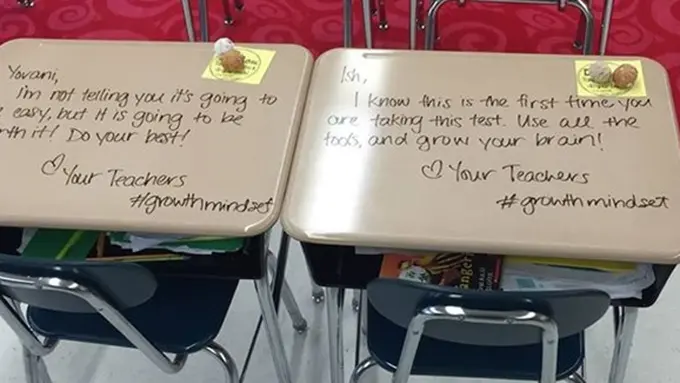 Yovani,
I'm not telling you it's going to
easy, but it is going to be
it! Do your best!
♡ Your Teachers
#growthmindset
Ish,
I know this is the first time you
are taking this test. Use all the
tools, and grow your brain!
♡ Your Teachers
#growthmindset